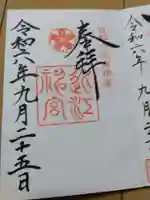 奉拝
近江神宮
令和六年九月二十五日
令和六年
九月二